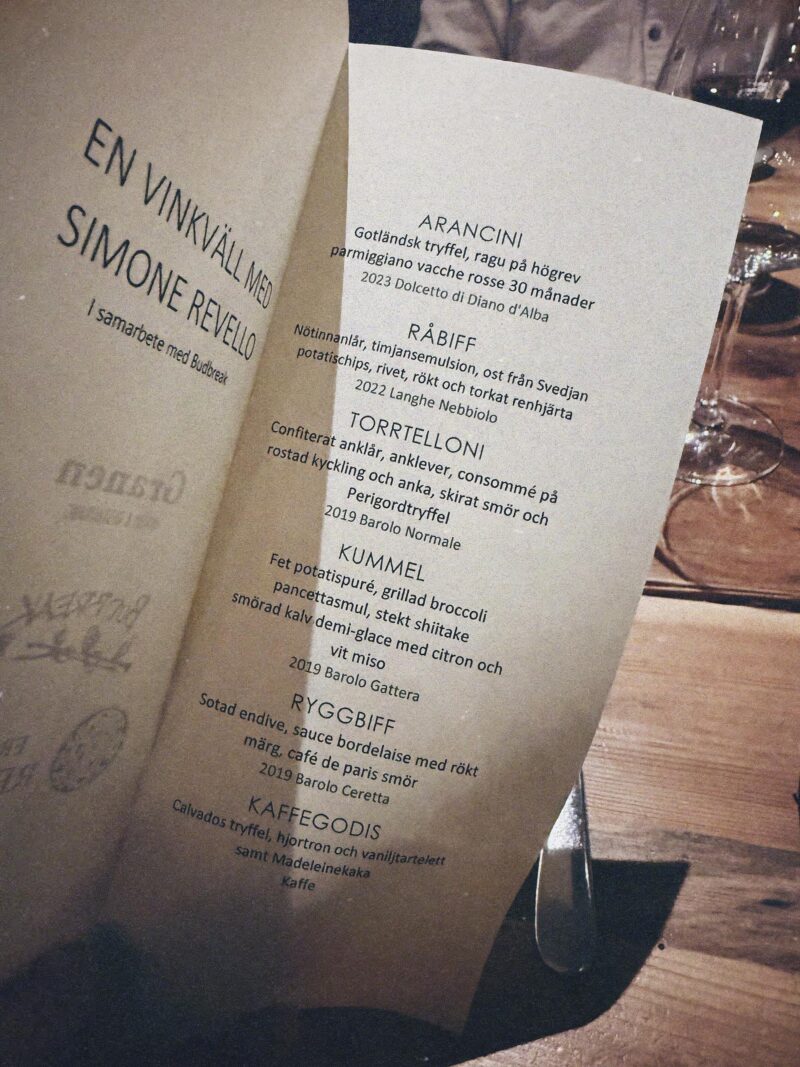 EN VINKVÄLL MED
SIMONE REVELLO
I samarbete med Budbreak
Granen
ARANCINI
Gotländsk tryffel, ragu på högrev
parmiggiano vacche rosse 30 månader
2023 Dolcetto di Diano d'Alba
RÅBIFF
Nötinnanlår, timjansemulsion, ost från Svedjan
potatischips, rivet, rökt och torkat renhjärta
2022 Langhe Nebbiolo
TORRTELLONI
Confiterat anklår, anklever, consommé på
rostad kyckling och anka, skirat smör och
Perigordtryffel
2019 Barolo Normale
KUMMEL
Fet potatispuré, grillad broccoli
pancettasmul, stekt shiitake
smörad kalv demi-glace med citron och
vit miso
2019 Barolo Gattera
RYGGBIFF
Sotad endive, sauce bordelaise med rökt
märg, café de paris smör
2019 Barolo Ceretta
KAFFEGODIS
Calvados tryffel, hjortron och vaniljtartelett
samt Madeleinekaka
Kaffe